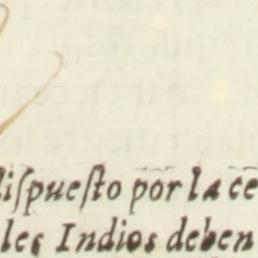 liſpueſto por la ce
les Indios deben